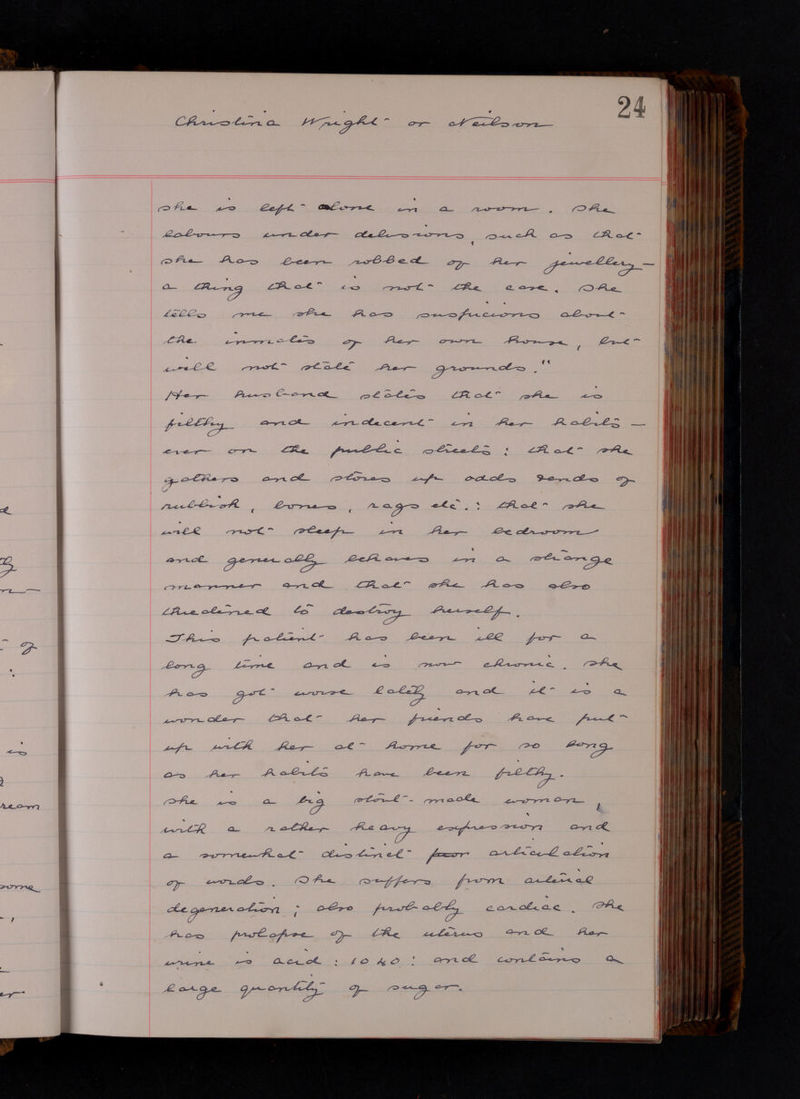 24
Christina Wright or Neilson
she is left alone in a room. She
labours under delusions, such as that
she has been robbed of her jewellery —
a thing that is not the case. She
tells me she has suspicions about
the inmates of her own house, but
will not state her grounds."
Her husband states that she is
filthy and indecent in her habits —
even on the public streets: that she
gathers and stores up odds & ends of
rubbish, bones, rags etc.: that she
will not sleep in her bedroom
and generally behaves in a strange
manner and that she has also
threatened to destroy herself.
This patient has been ill for a
long time and is now chronic. She
has got worse lately and it is a
wonder that her friends have put
up with her at home for so long
as her habits have been filthy.
She is a big stout-made woman,
with a rather heavy expression and
a somewhat distinct articulation
of words. She suffers from arterial
degeneration; also probably cardiac. She
has prolapse of the uterus and her
urine is acid: 1040: and contains a
large quantity of sugar.